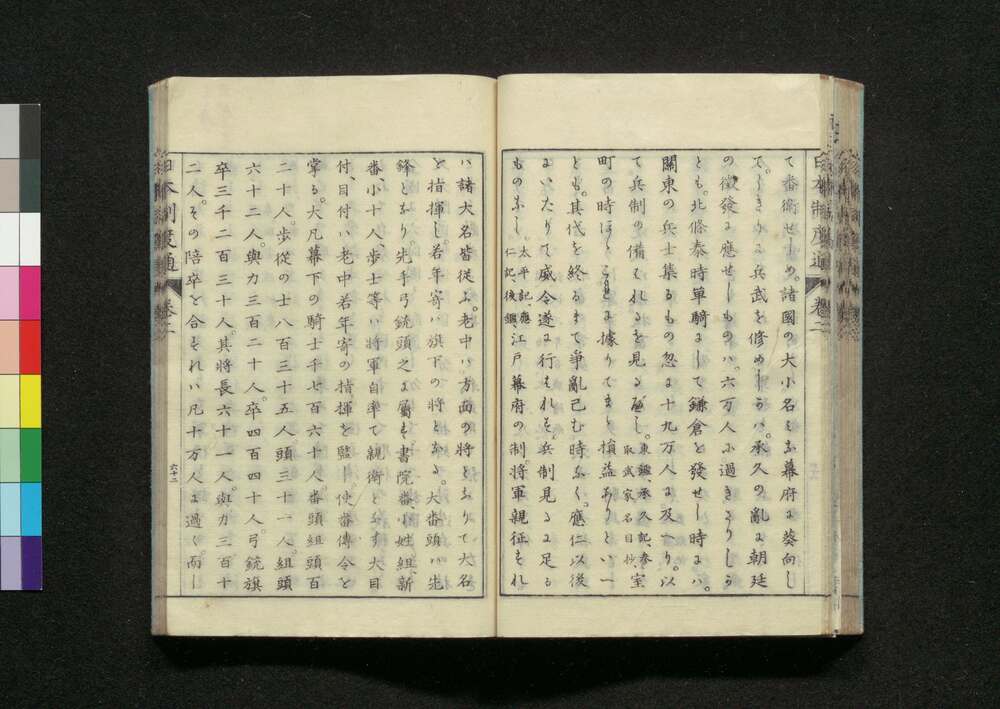 て番衛せしめ。諸國の大小名みな幕府に葵向し
て。しきりに兵武を修めしうハ。承久の亂に朝廷
の徴發に應せしものハ。六万人に過きさりしう
とも。北條泰時單騎にして鎌倉を發せし時にハ。
關東の兵士集るもの忽に十九万人に及へり。以
て兵制の備はれるを見るへし。東鑑、承久記、參取武家名目抄、室
町の時ほゝこれに據りてまゝ損益ありといへ
とも。其代を終るまて爭亂已む時なく。應仁以後
にいたりて威令遂に行はれす。兵制見るに足る
ものなし。太平記、應仁記、後鑑、江戸幕府の制將軍親征すれ
ハ諸大名皆從ふ。老中ハ方面の將となりて大名
を指揮し。若年寄ハ旗下の將となる。大番頭ハ先
鋒となり。先手弓銃頭之に屬す。書院番、小姓組、新
番、小十人、歩士等ハ將軍自率て親衛となす。大目
付、目付ハ老中若年寄の指揮を監し。使番傳令を
掌る。大凡幕下の騎士千七百六十人。番頭組頭百
二十人。歩從の士八百三十五人。頭三十一人。組頭
六十二人。與力三百二十人。卒四百四十人弓銃旗
卒三千二百三十人。其將長六十一人。與力三百十
二人。その陪卒を合すれハ凡十万人に過く。而し
日本制度通
卷二
六十二
日本制度通
卷二